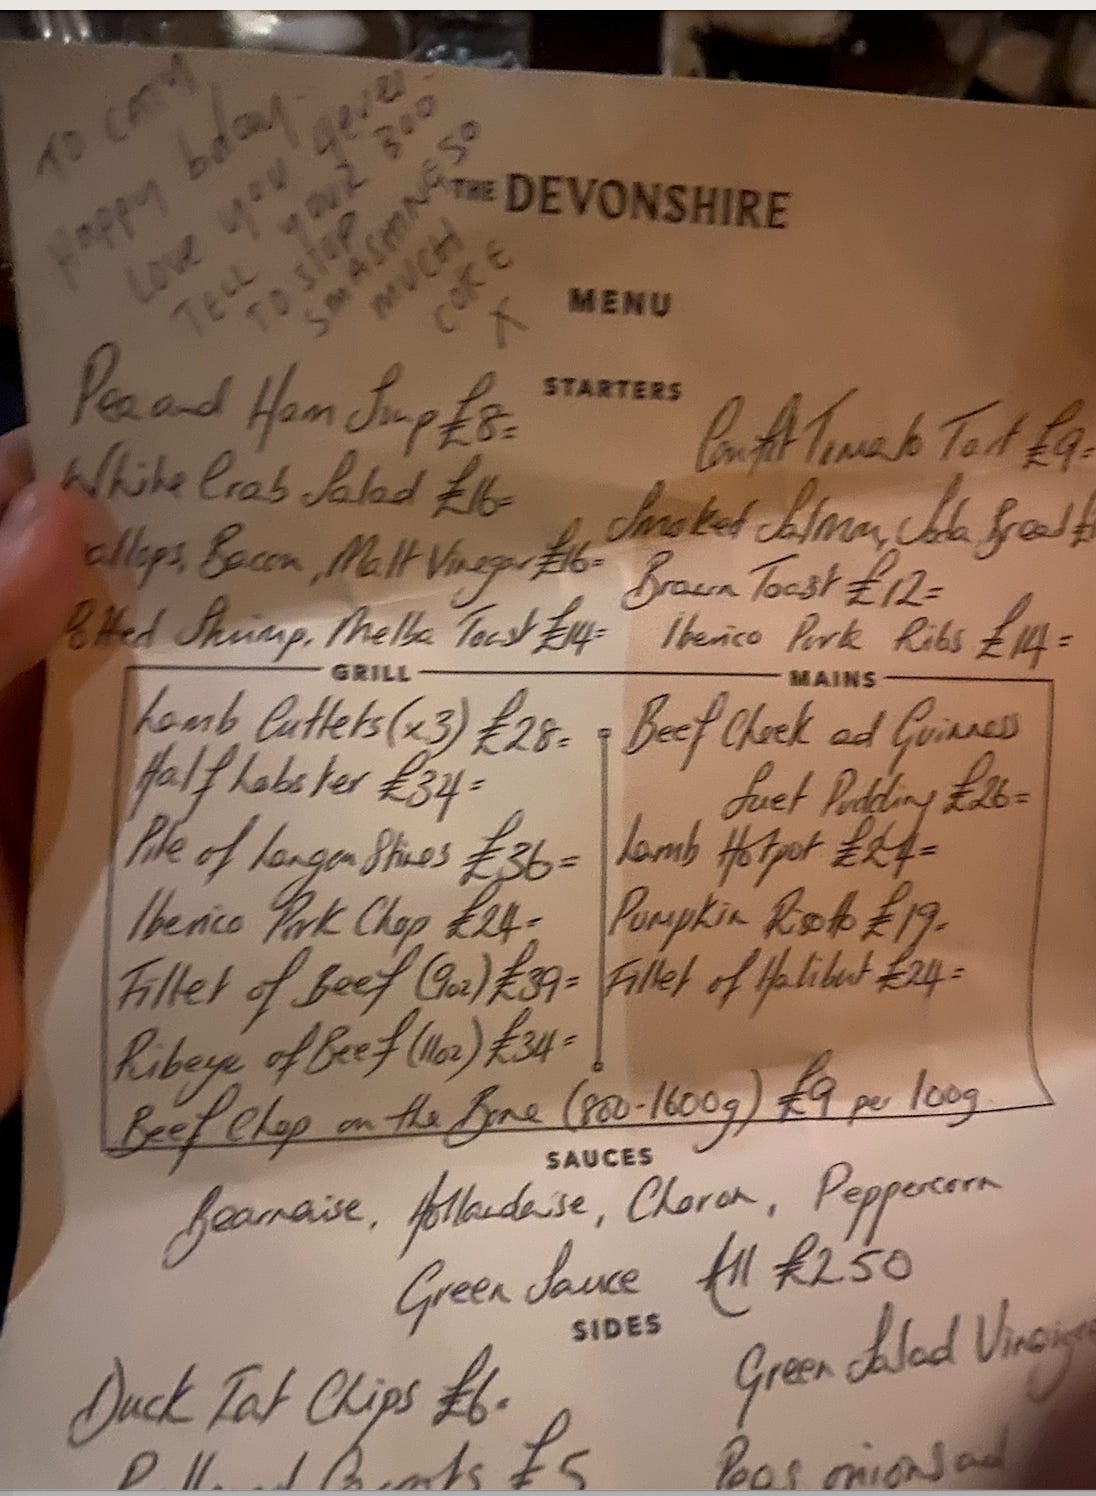 TO CATY
Happy bday.
Love you
TELL your BOO
TO STOP
SMASHING SO
MUCH
COKE
X
THE DEVONSHIRE
MENU
STARTERS
Pea and Ham Soup £8=
Confit Tomato Tart £9=
White Crab Salad £16=
Smoked Salmon, Soda Bread
Bacon, Malt Vinegar £16=
Brown Toast £12=
Potted Shrimp, Melba Toast £14=
Iberico Pork Ribs £14=
GRILL
Lamb Cutlets (x3) £28=
Half Lobster £34=
Pile of Langoustines £36=
Iberico Pork Chop £24=
Fillet of Beef (9oz) £39=
Ribeye of Beef (11oz) £34=
Beef Chop on the Bone (800-1600g) £9 per 100g
MAINS
Beef Cheek ad Guinness
Suet Pudding £26=
Lamb Hotpot £24=
Pumpkin Risotto £19=
Fillet of Halibut £24=
SAUCES
Bearnaise, Hollandaise, Choron, Peppercorn
Green Sauce All £2.50
SIDES
Duck Fat Chips £6=
Green Salad
£5
Peas onions ad